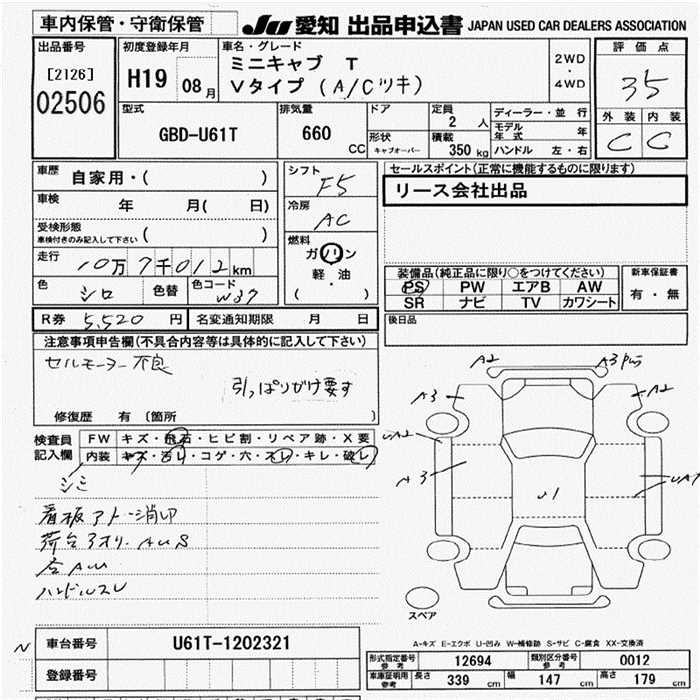 車内保管・守衛保管 JU 愛知 出品申込書 JAPAN USED CAR DEALERS ASSOCIATION
出品番号 [2126] 02506
初度登録年月 H19 08月
車名・グレード
ミニキャブ T
Vタイプ (A/Cツキ)
2WD・4WD
評価点 35
外装 内装
C C
型式 GBD-U61T
排気量 660 CC
ドア
形状 キャブオーバー
定員 2 人
積載 350 kg
ディーラー・並行
モデル年式 年
ハンドル 左・右
車歴 自家用・( )
車検 年 月( 日)
受検形態 車検付きのみ記入して下さい ( )
走行 10万7千012km
色 シロ 色替 色コード W37
シフト F5
冷房 AC
燃料 ガソリン 軽・油 ( )
セールスポイント(正常に機能するものに限ります)
リース会社出品
装備品(純正品に限り○をつけてください)
PS PW エアB AW
SR ナビ TV カワシート
新車保証書 有・無
後日品
R券 5,520 円 名変通知期限 月 日
注意事項申告欄(不具合内容等は具体的に記入して下さい)
セルモーター不良
引っぱりがけ要す
修復歴 有 〔箇所 〕
検査員記入欄
FW キズ・飛石・ヒビ割・リペア跡・X要
内装 キズ・汚レ・コゲ・穴・スレ・キレ・破レ
シミ
看板アト・消印
荷台アオリ AUS
ハンドルスレ
A2
A3
A3
A2
UA2
A3
U1
スペア
車台番号 U61T-1202321
登録番号
A-キズ E-エクボ U-凹み W-補修跡 S-サビ C-腐食 XX-交換済
形式指定番号 参考 12694 類別区分番号 参考 0012
車庫証明用 参考 長さ 339 cm 幅 147 cm 高さ 179 cm